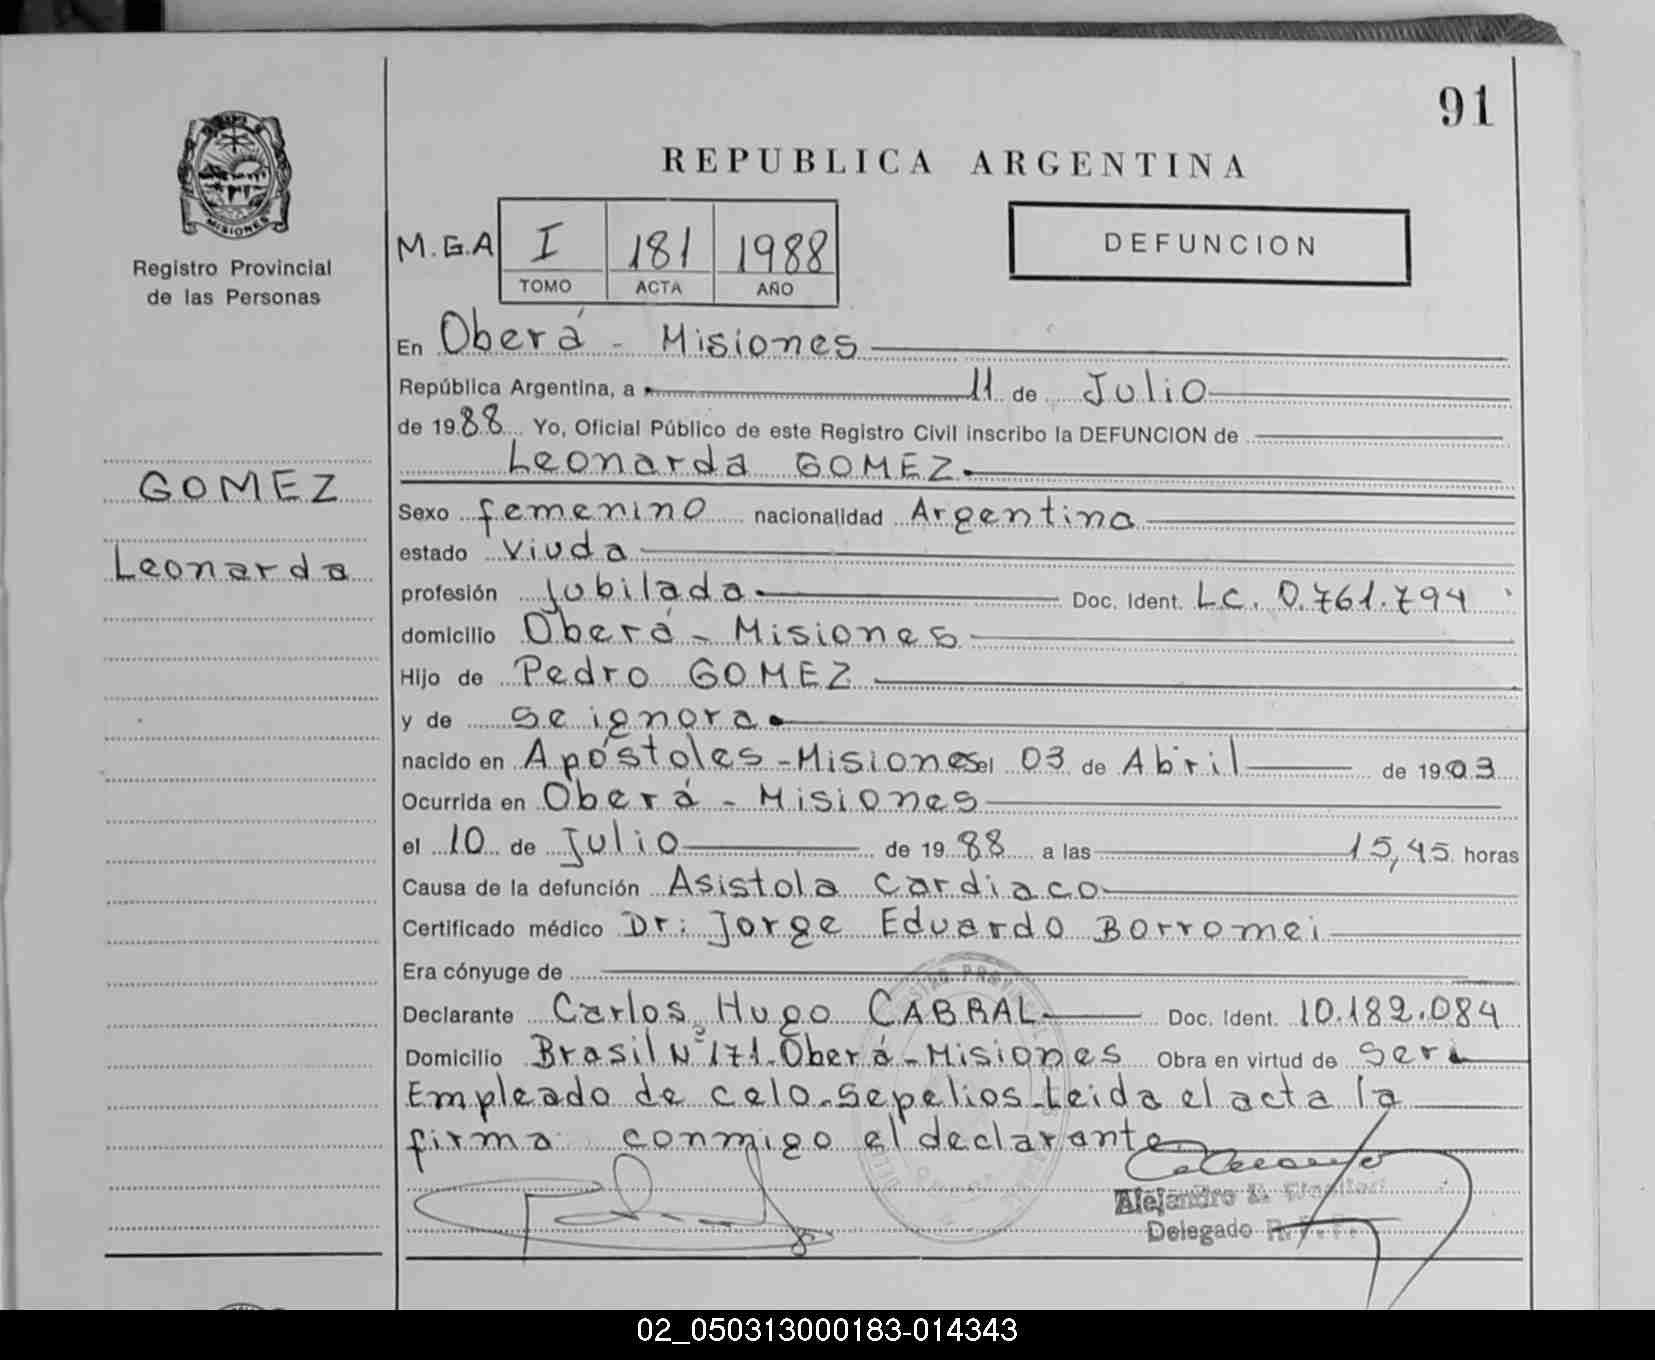 91
REPUBLICA ARGENTINA
MISIONES
Registro Provincial
de las Personas
M.G.A I 181 1988
TOMO ACTA AÑO
DEFUNCION
GOMEZ
Leonarda
En Oberá - Misiones
República Argentina, a 11 de Julio
de 1988 Yo, Oficial Público de este Registro Civil inscribo la DEFUNCION de
Leonarda GOMEZ
Sexo femenino nacionalidad Argentina
estado Viuda
profesión jubilada Doc. Ident. LC. 0.761.794
domicilio Oberá - Misiones
Hijo de Pedro GOMEZ
y de se ignora
nacido en Apóstoles - Misiones el 03 de Abril de 1903
Ocurrida en Oberá - Misiones
el 10 de Julio de 1988 a las 15,45 horas
Causa de la defunción Asistola cardiaco
Certificado médico Dr: Jorge Eduardo Borromei
Era cónyuge de
Declarante Carlos Hugo CABRAL Doc. Ident. 10.182.084
Domicilio Brasil Nº 171-Oberá-Misiones Obra en virtud de ser
Empleado de celo-sepelios-Leida el acta la
firma conmigo el declarante
Alejandro
Delegado
02_050313000183-014343